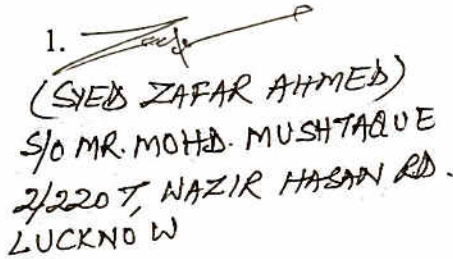 1.
(SYED ZAFAR AHMED)
S/O MR. MOHD. MUSHTAQUE
2/220 T, WAZIR HASAN RD.
LUCKNOW